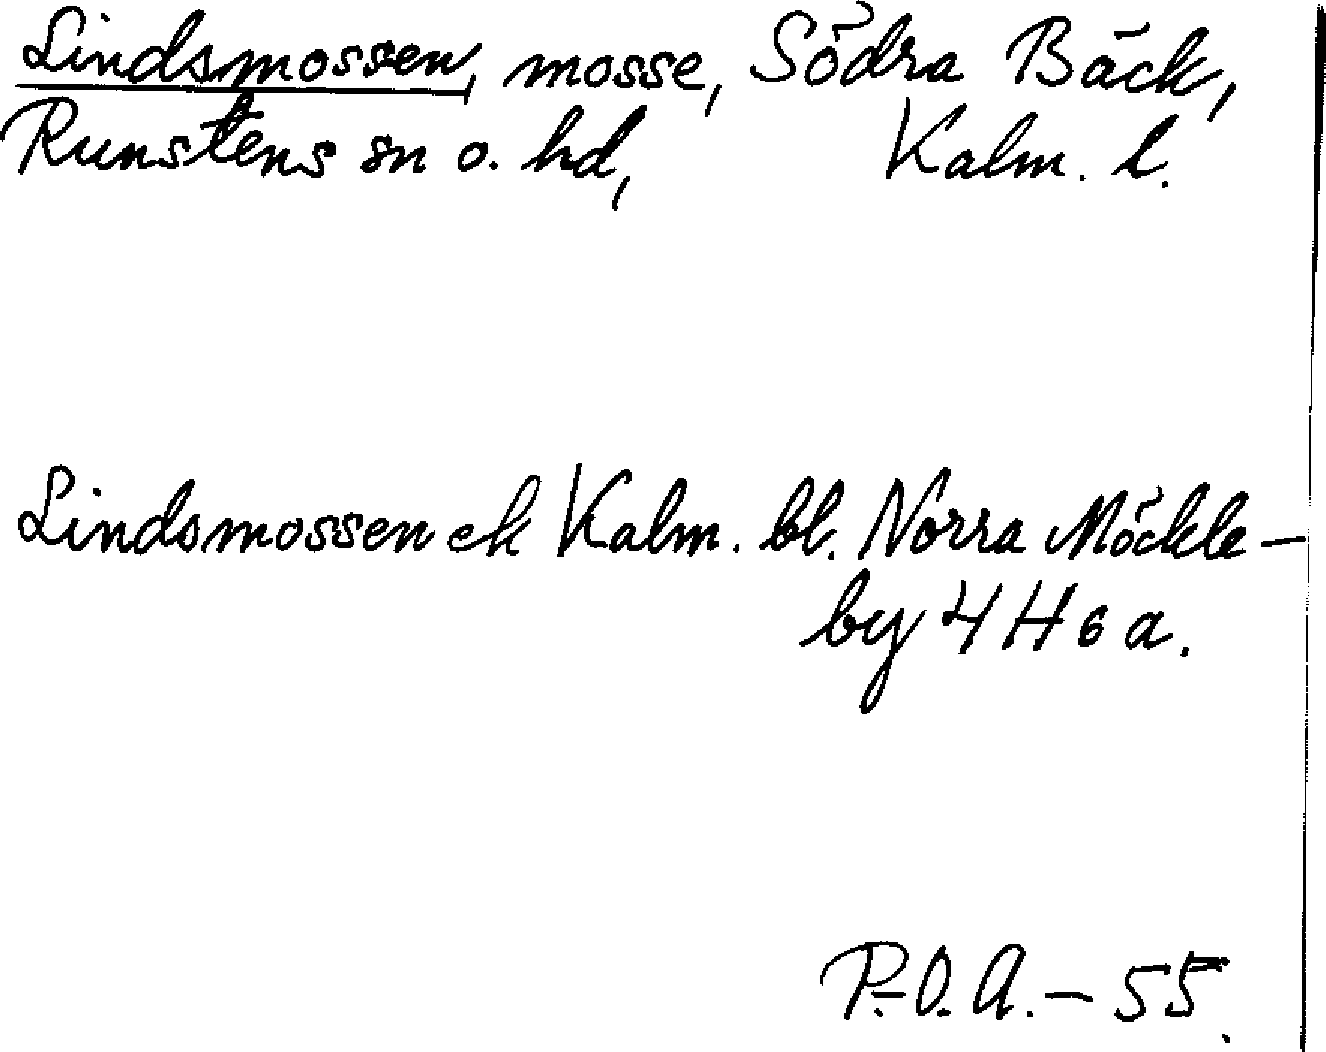 Lindsmossen, mosse, Södra Bäck,
Runstens sn o. hd, Kalm. l.
Lindsmossen ek Kalm. bl. Norra Möckle-
by 4 H 6 a.
P.-O. A. - 55.